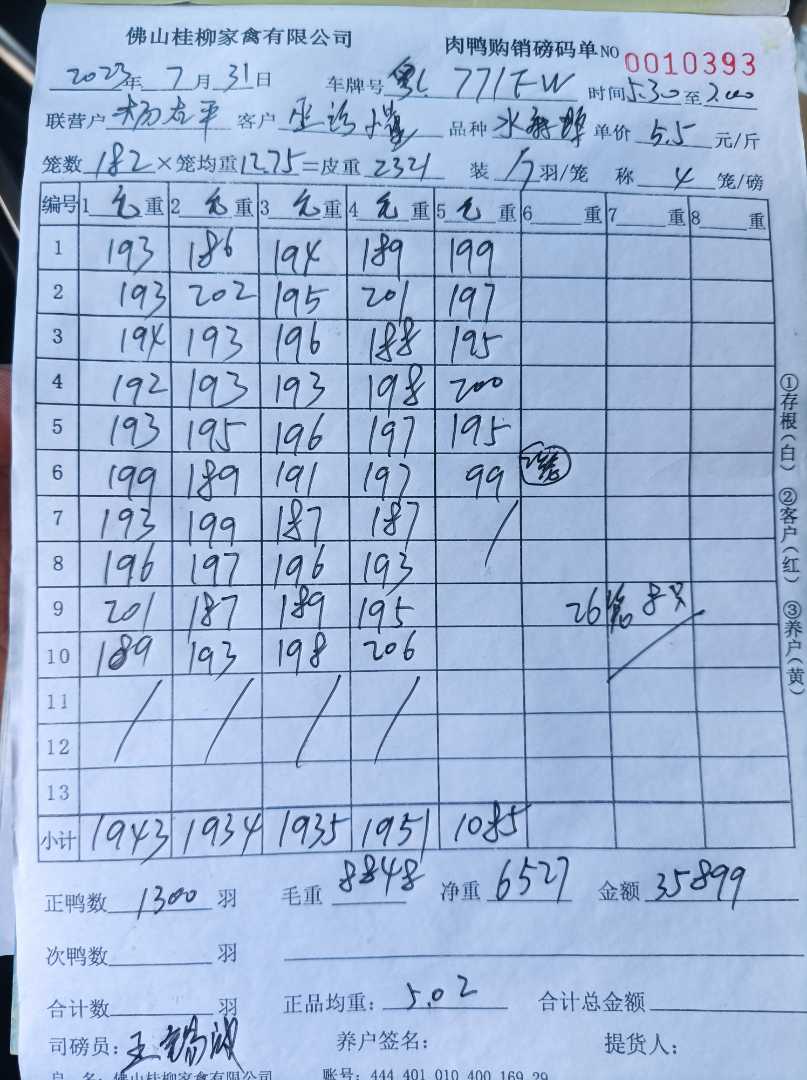 佛山桂柳家禽有限公司
肉鸭购销磅码单 NO 0010393
2023年 7月 31日 车牌号 粤L 771FW 时间 5.30 至 7.00
联营户 杨志平 客户 品种 水 单价 5.5 元/斤
笼数 182 ×笼均重 12.75 =皮重 2321 装 7 羽/笼 称 4 笼/磅
编号 1 毛 重 2 毛 重 3 毛 重 4 毛 重 5 毛 重 6 重 7 重 8 重
1 193 186 194 189 199
2 193 202 195 201 197
3 194 193 196 188 195
4 192 193 193 198 200
5 193 195 196 197 195
6 199 189 191 197 99 2笼
7 193 199 187 187 /
8 196 197 196 193
9 201 187 189 195 26笼 8只
10 189 193 198 206
11 / / / /
12
13
小计 1943 1934 1935 1951 1085
正鸭数 1300 羽 毛重 8848 净重 6527 金额 35899
次鸭数 羽
合计数 羽 正品均重: 5.02 合计总金额
司磅员: 王 养户签名: 提货人:
户 名: 佛山桂柳家禽有限公司 账号: 444 401 010 400 169 29
①存根(白) ②客户(红) ③养户(黄)